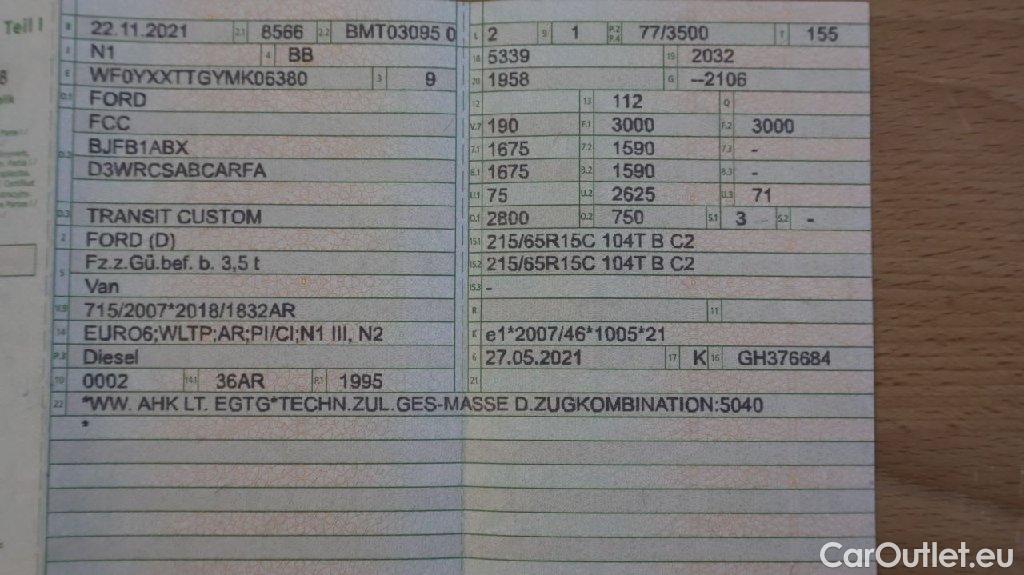 Teil I
B 22.11.2021 2.1 8566 2.2 BMT03095 0
J N1 4 BB
E WF0YXXTTGYMK06380 3 9
D.1 FORD
FCC
D.2 BJFB1ABX
D3WRCSABCARFA
D.3 TRANSIT CUSTOM
2 FORD (D)
5 Fz.z.Gü.bef. b. 3,5 t
Van
V.9 715/2007*2018/1832AR
14 EURO6;WLTP;AR;PI/CI;N1 III, N2
P.3 Diesel
10 0002 14.1 36AR P.1 1995
22 *WW. AHK LT. EGTG*TECHN.ZUL.GES-MASSE D.ZUGKOMBINATION:5040
*
L 2 9 1 P.2 P.4 77/3500 T 155
18 5339 19 2032
20 1958 G --2106
12 13 112 Q
V.7 190 F.1 3000 F.2 3000
7.1 1675 7.2 1590 7.3 -
8.1 1675 8.2 1590 8.3 -
U.1 75 U.2 2625 U.3 71
O.1 2800 O.2 750 S.1 3 S.2 -
15.1 215/65R15C 104T B C2
15.2 215/65R15C 104T B C2
15.3 -
R 11
K e1*2007/46*1005*21
6 27.05.2021 17 K 16 GH376684
21
CarOutlet.eu